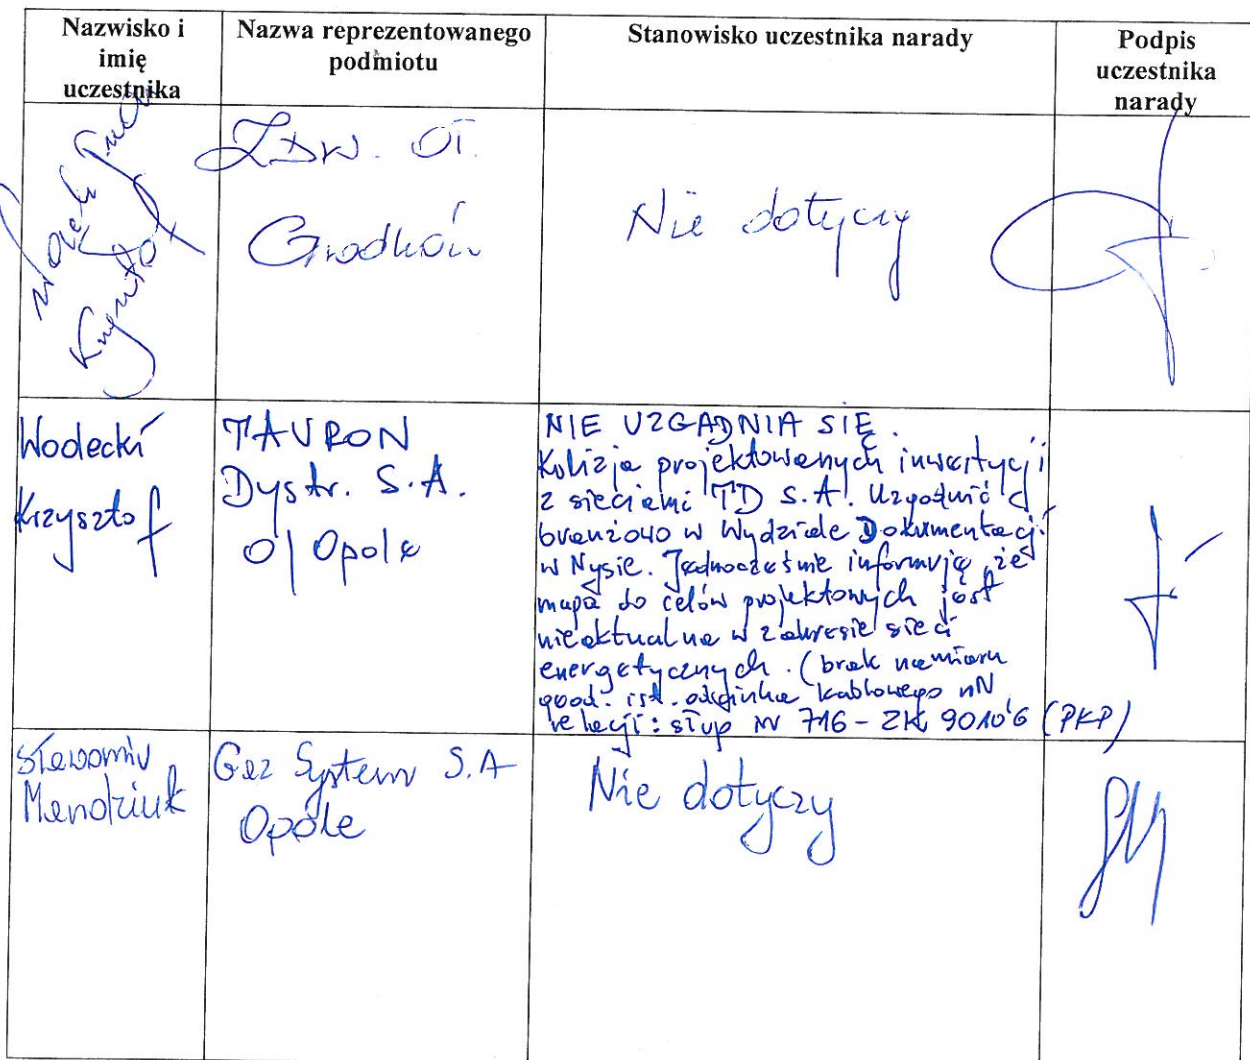 Nazwisko i
imię
uczestnika
Nazwa reprezentowanego
podmiotu
Stanowisko uczestnika narady
Podpis
uczestnika
narady
Krzysztof
ZDW. OT.
Grodków
Nie dotyczy
Wodecki
Krzysztof
TAURON
Dystr. S.A.
O/Opole
NIE UZGADNIA SIĘ.
Kolizja projektowanych inwestycji
z sieciami TD S.A. Uzgodnić
branżowo w Wydziale Dokumentacji
w Nysie. Jednocześnie informuję, że
mapa do celów projektowych jest
nieaktualna w zakresie sieci
energetycznych. (brak namiaru
geod. ist. odcinka kablowego nN
relacji: słup nr 716 - ZK 90106 (PKP)
Sławomir
Mendziuk
Gaz System S.A
Opole
Nie dotyczy